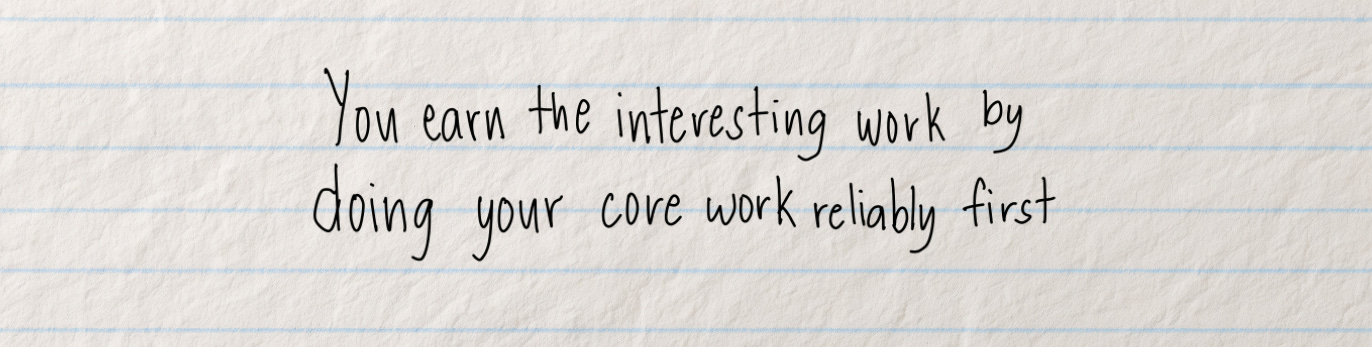 You earn the interesting work by
doing your core work reliably first